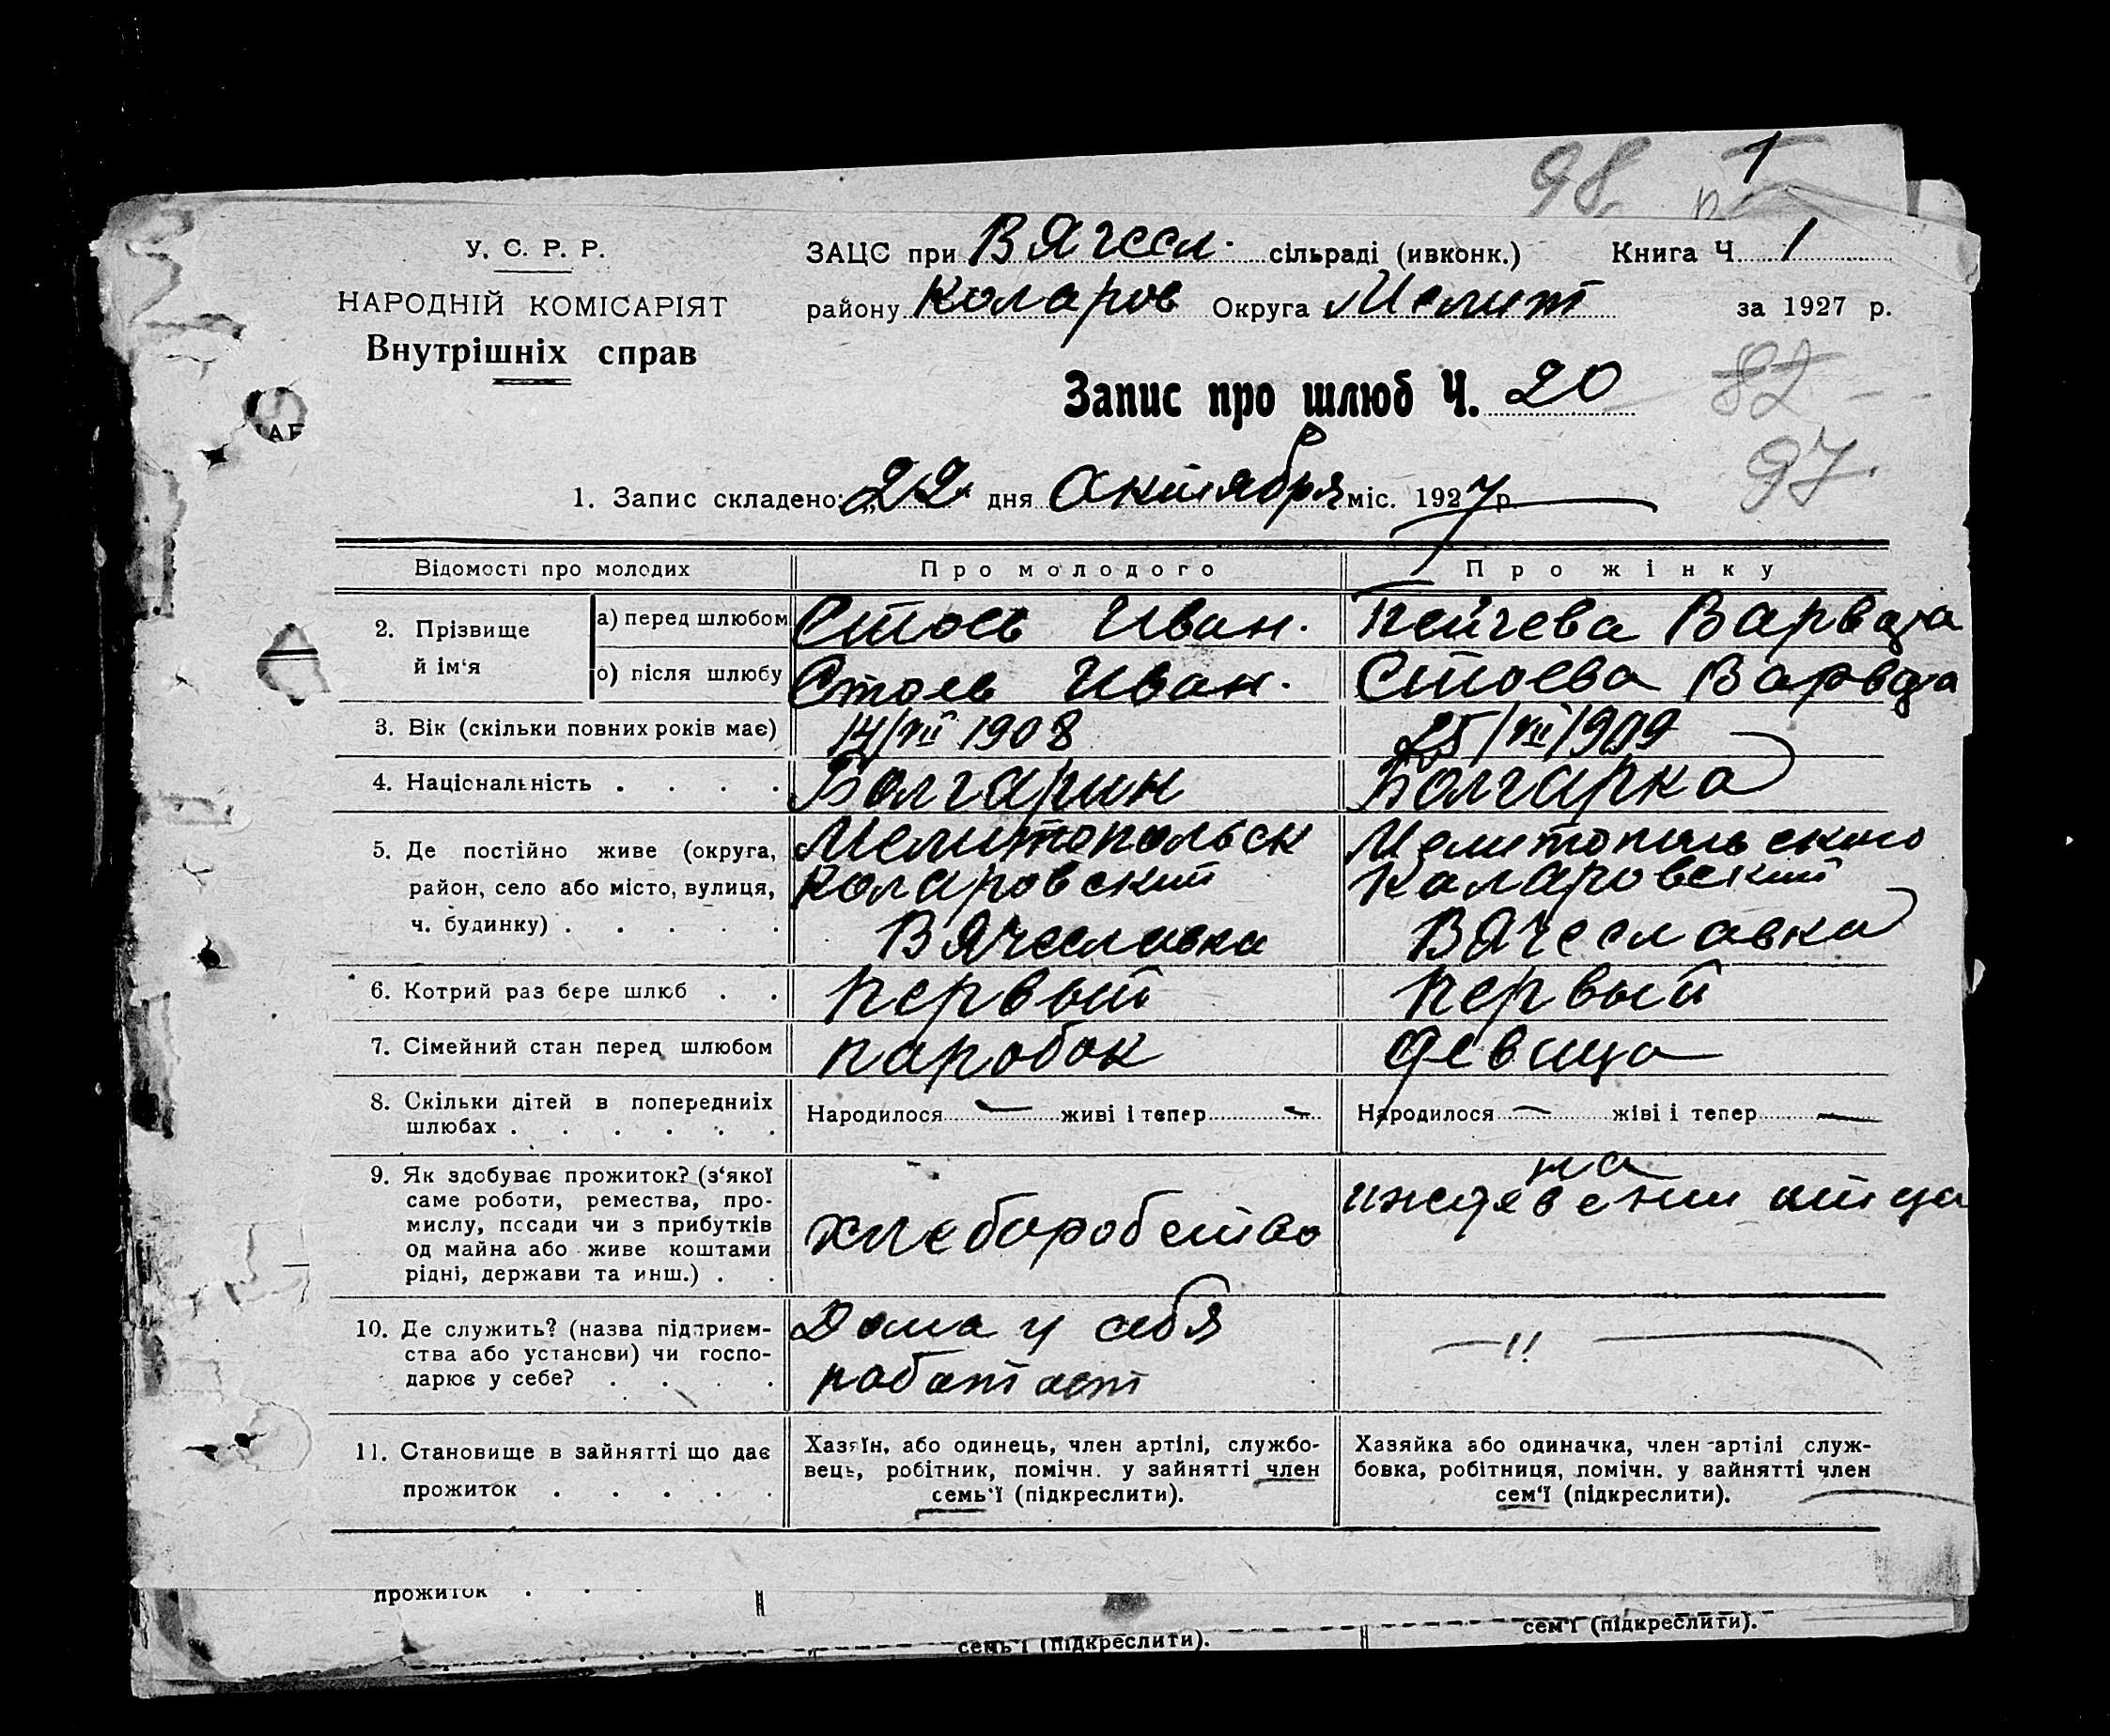 98
1
У. С. Р. Р.
НАРОДНІЙ КОМІСАРІЯТ
Внутрішніх справ
ЗАЦС при Вячесл. сільраді (ивконк.) Книга Ч. 1
району Коларов Округа Мелит за 1927 р.
Запис про шлюб Ч. 20
82
97
1. Запис складено: „22" дня Октября міс. 1927 р.
Відомості про молодих
Про молодого
Про жінку
2. Прізвище й ім'я
а) перед шлюбом Стоев Иван. Пейчева Варвара
о) після шлюбу Стоев Иван. Стоева Варвара
3. Вік (скільки повних років має) 14/VII 1908 25/VII/1909
4. Національність . . . . Болгарин Болгарка
5. Де постійно живе (округа, Мелитопольск Мелитопольского
район, село або місто, вулиця, Коларовский Каларовский
ч. будинку) . . . . . Вячеславка Вячеславка
6. Котрий раз бере шлюб . . первый первый
7. Сімейний стан перед шлюбом паробок девица
8. Скільки дітей в попередниіх Народилося — живі і тепер — Народилося — жіві і тепер —
шлюбах . . . . . .
9. Як здобуває прожиток? (з'якої
саме роботи, ремества, про-
мислу, посади чи з прибутків
од майна або живе коштами
рідні, держави та инш.) . .
хлеборобство
на
иждевении отца
10. Де служить? (назва підприєм-
ства або установи) чи госпо-
дарює у себе? . . . .
Дома у себя
работает
— ״ —
11. Становище в зайнятті що дає
прожиток . . . . .
Хазяїн, або одинець, член артілі, службо-
вець, робітник, помічн. у зайнятті член
семь'ї (підкреслити).
Хазяйка або одиначка, член артілі служ-
бовка, робітниця, помічн. у зайнятті член
сем'ї (підкреслити).
прожиток . . .
семь'ї (підкреслити).
сем'ї (підкреслити).